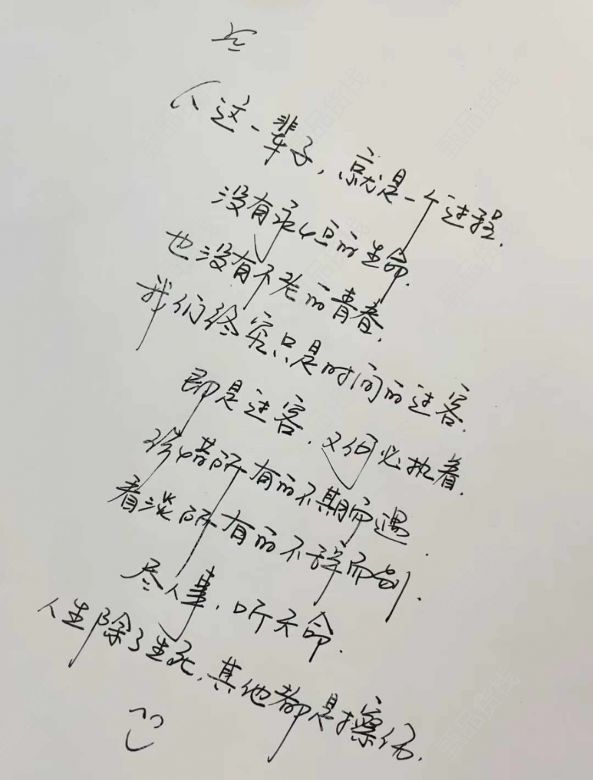 人这一辈子，就是一个过程.
没有永恒的生命.
也没有不老的青春.
我们终究只是时间的过客.
即是过客，又何必执着.
珍惜所有的不期而遇.
看淡所有的不辞而别.
尽人事，听天命.
人生除了生死，其他都是擦伤.